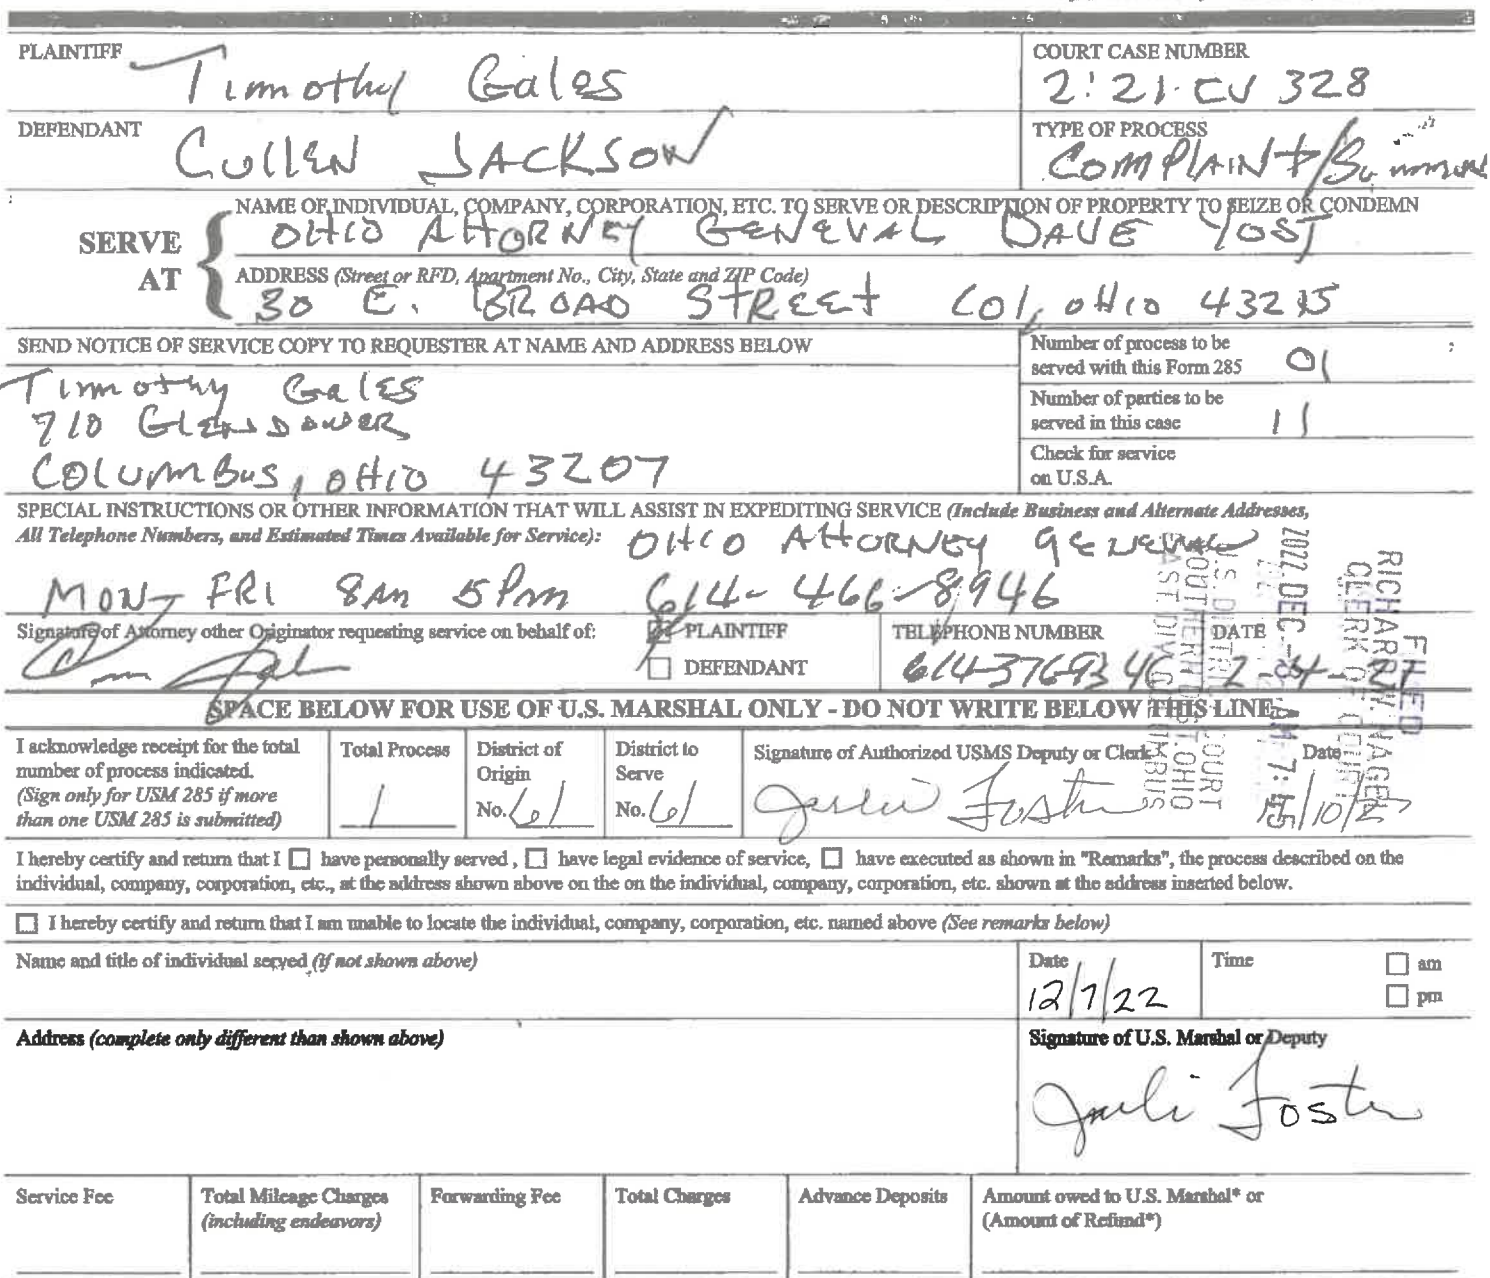 PLAINTIFF
Timothy Gales
COURT CASE NUMBER
2:21-CV 328
DEFENDANT
Cullen JACKSON
TYPE OF PROCESS
COMPLAINT/Summons
SERVE AT
NAME OF INDIVIDUAL, COMPANY, CORPORATION, ETC. TO SERVE OR DESCRIPTION OF PROPERTY TO SEIZE OR CONDEMN
OHIO ATTORNEY GENERAL DAVE YOST
ADDRESS (Street or RFD, Apartment No., City, State and ZIP Code)
30 E. BROAD STREET COl, OHIO 43215
SEND NOTICE OF SERVICE COPY TO REQUESTER AT NAME AND ADDRESS BELOW
Timothy Gales
710 GLENDOWER
COLUMBUS, OHIO 43207
Number of process to be
served with this Form 285
01
Number of parties to be
served in this case
11
Check for service
on U.S.A.
SPECIAL INSTRUCTIONS OR OTHER INFORMATION THAT WILL ASSIST IN EXPEDITING SERVICE (Include Business and Alternate Addresses,
All Telephone Numbers, and Estimated Times Available for Service):
OHIO ATTORNEY GENERAL
MON- FRI 8AM 5PM 614-466-8946
Signature of Attorney other Originator requesting service on behalf of:
PLAINTIFF
DEFENDANT
TELEPHONE NUMBER
614-3769346
DATE
FILED
RICHARD W. NAGEL
CLERK OF COURT
2022 DEC -8 AM 7:15
U.S. DISTRICT COURT
SOUTHERN DIST. OHIO
EAST. DIV. COLUMBUS
SPACE BELOW FOR USE OF U.S. MARSHAL ONLY - DO NOT WRITE BELOW THIS LINE
I acknowledge receipt for the total
number of process indicated.
(Sign only for USM 285 if more
than one USM 285 is submitted)
Total Process
1
District of
Origin
No. 61
District to
Serve
No. 61
Signature of Authorized USMS Deputy or Clerk
Julie Foster
Date
I hereby certify and return that I have personally served, have legal evidence of service, have executed as shown in "Remarks", the process described on the
individual, company, corporation, etc., at the address shown above on the on the individual, company, corporation, etc. shown at the address inserted below.
I hereby certify and return that I am unable to locate the individual, company, corporation, etc. named above (See remarks below)
Name and title of individual served (if not shown above)
Date
12/7/22
Time
am
pm
Address (complete only different than shown above)
Signature of U.S. Marshal or Deputy
Juli Foster
Service Fee
Total Mileage Charges
(including endeavors)
Forwarding Fee
Total Charges
Advance Deposits
Amount owed to U.S. Marshal* or
(Amount of Refund*)